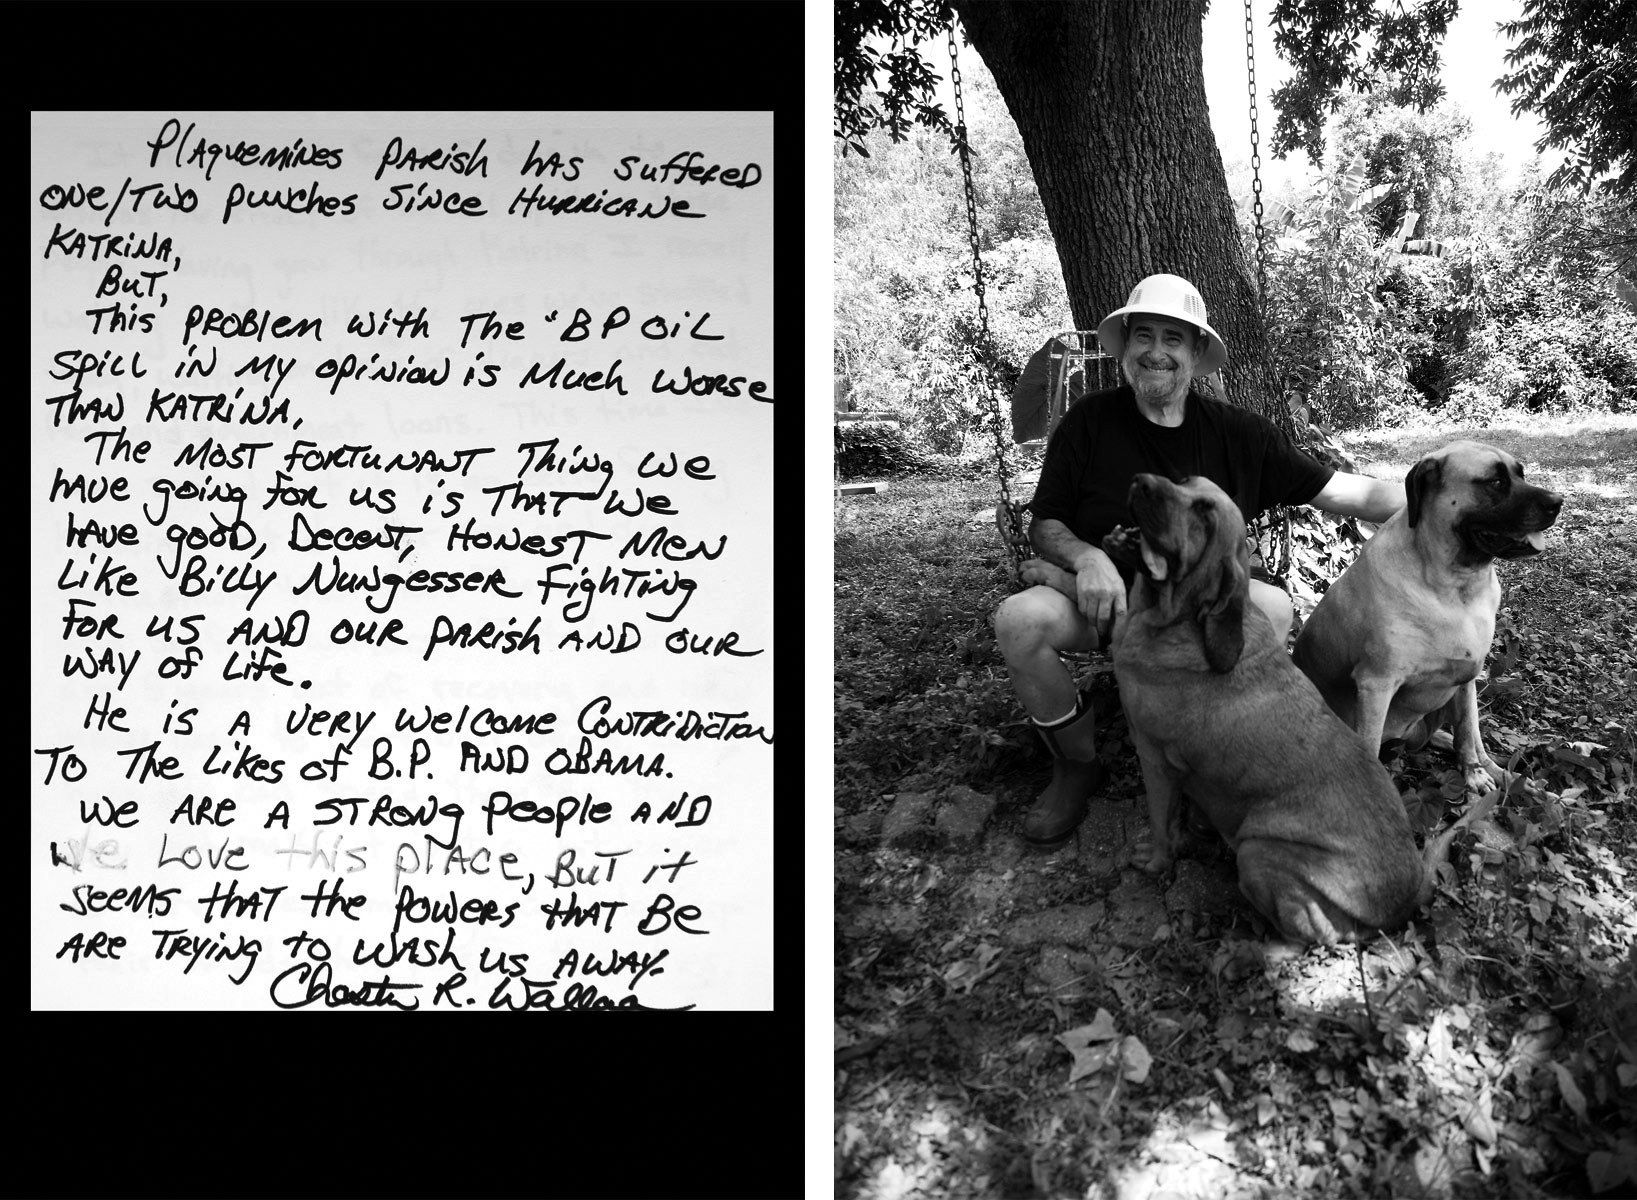 Plaquemines Parish has suffered
one/two punches since Hurricane
Katrina,
But,
This problem with the "BP oil
spill in my opinion is much worse
than Katrina,
The most fortunant thing we
have going for us is that we
have good, Decent, Honest men
like Billy Nungesser fighting
for us and our parish and our
way of life.
He is a very welcome Contridiction
to the likes of B.P. and Obama.
We are a strong people and
We love this place, But it
seems that the powers that be
are trying to wash us away.
R.